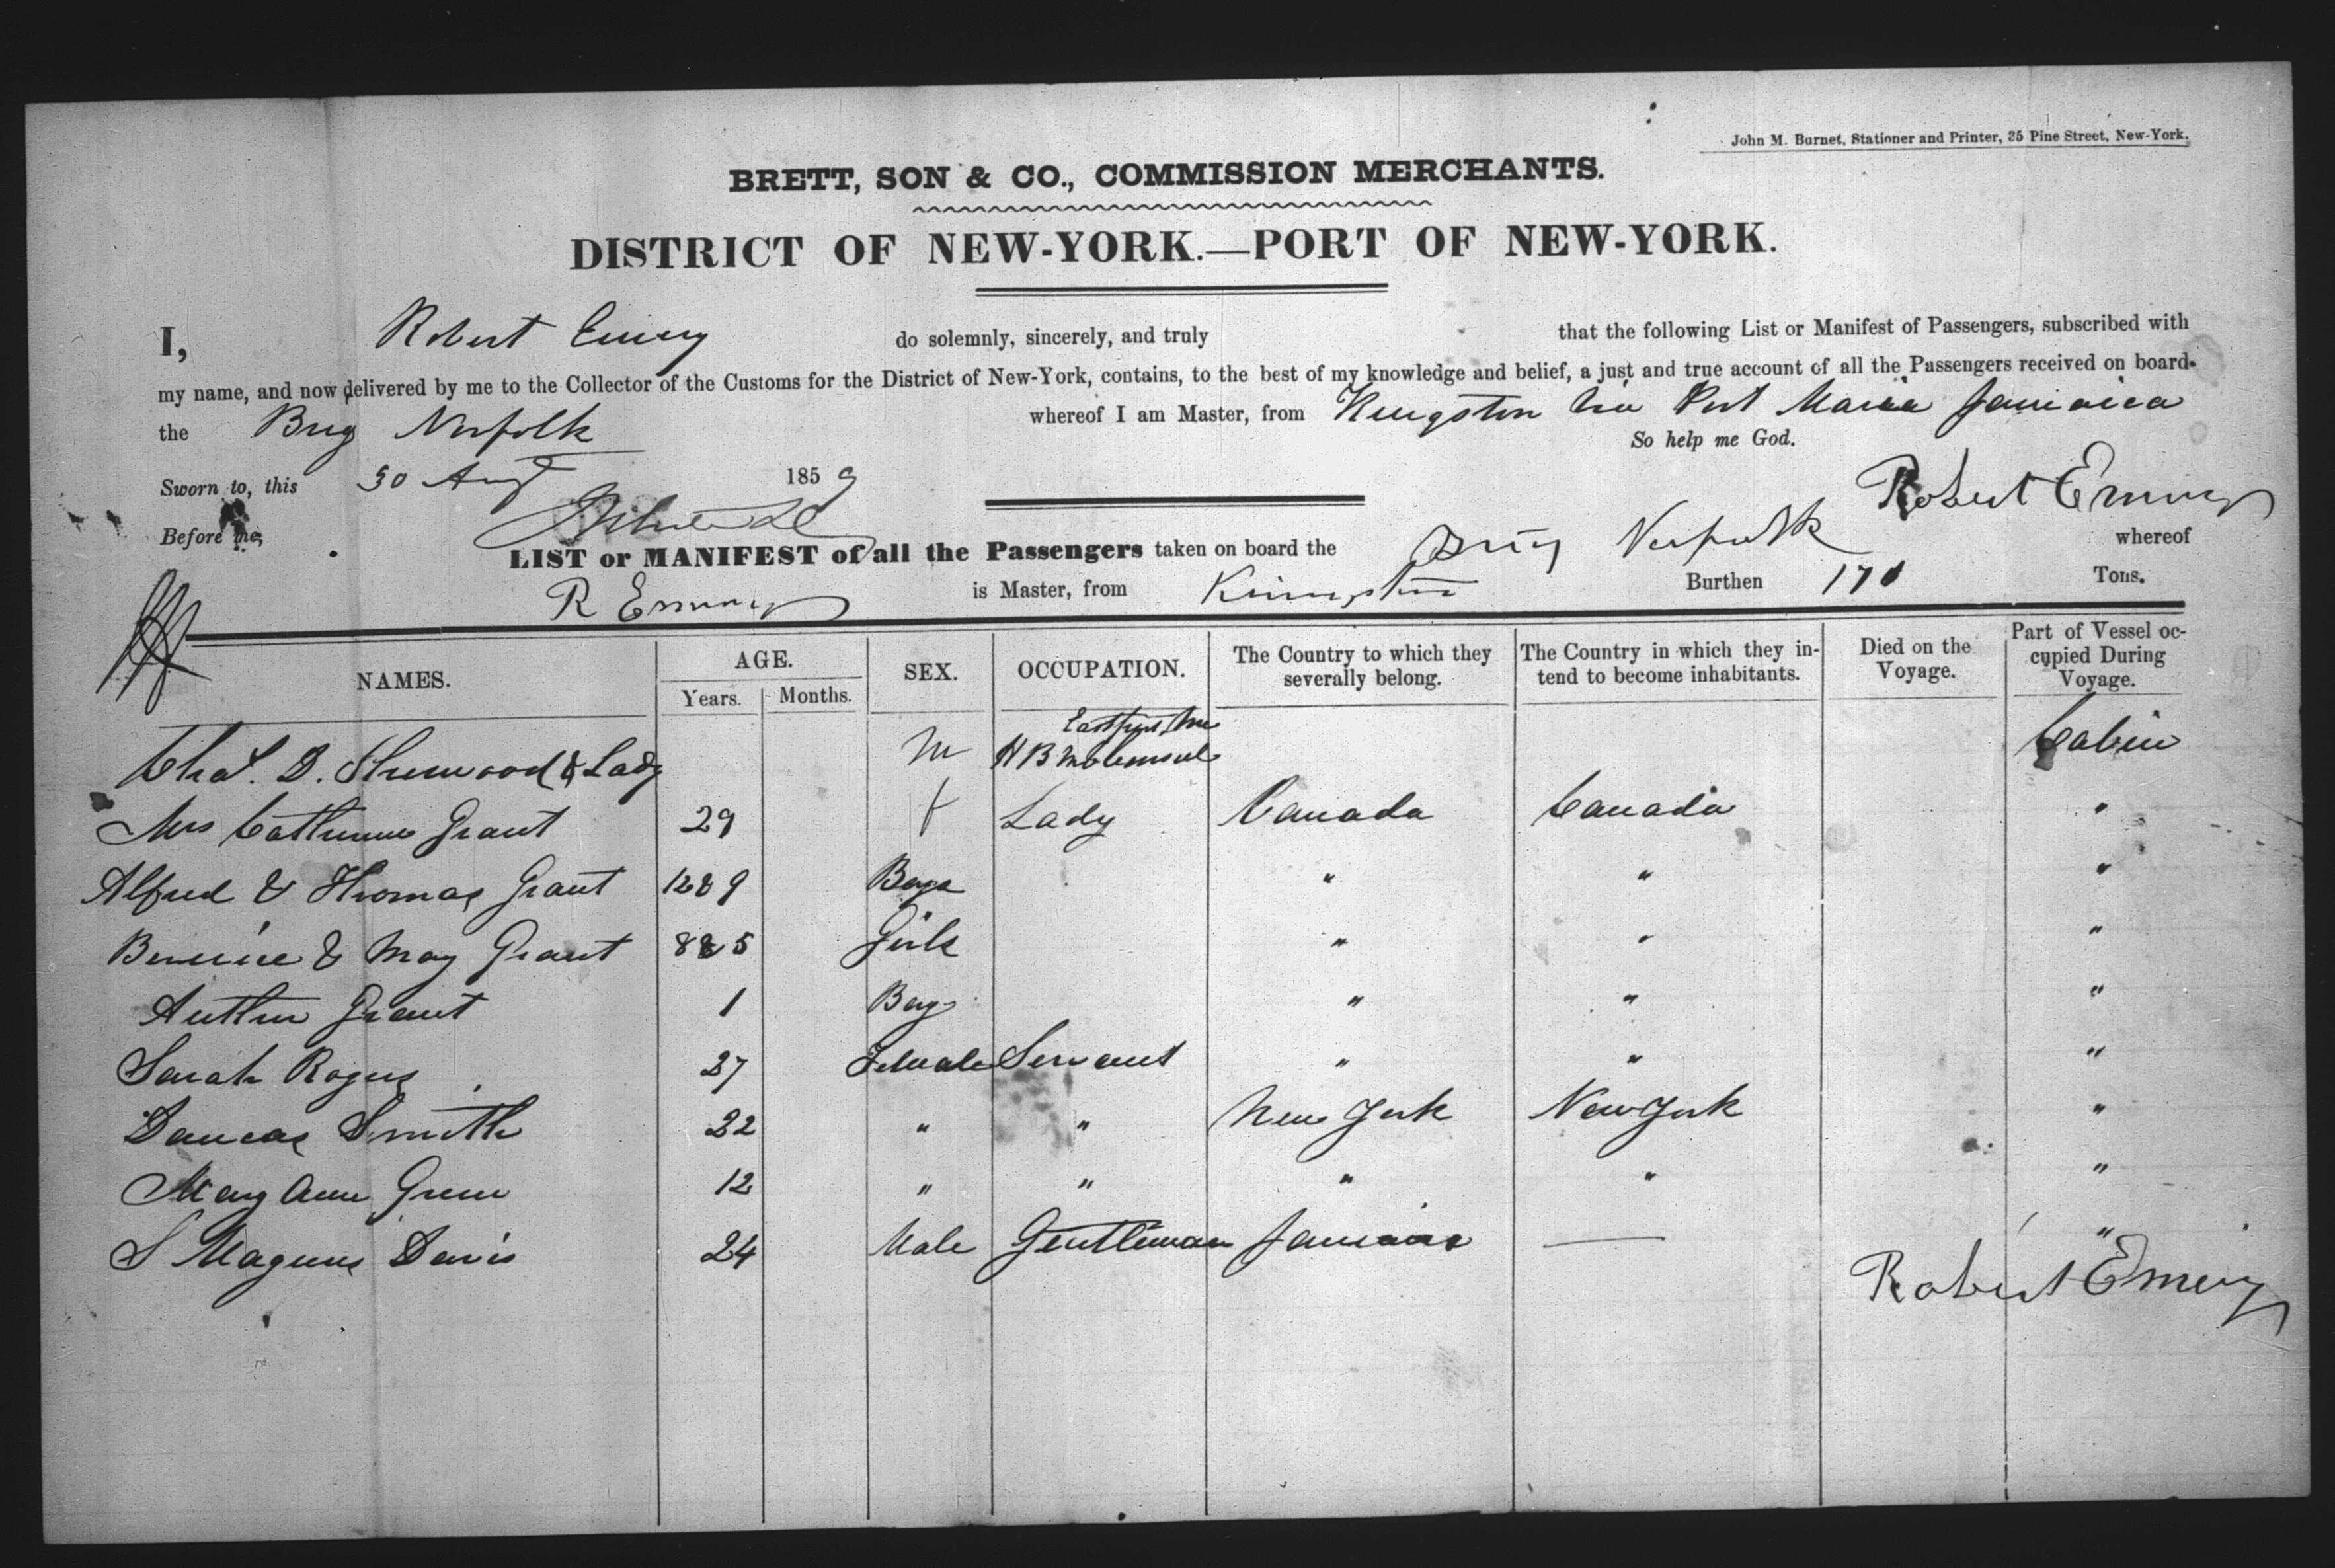 John M. Burnet, Stationer and Printer, 35 Pine Street, New-York.
BRETT, SON & CO., COMMISSION MERCHANTS.
DISTRICT OF NEW-YORK.—PORT OF NEW-YORK.
I, Robert Emery do solemnly, sincerely, and truly that the following List or Manifest of Passengers, subscribed with
my name, and now delivered by me to the Collector of the Customs for the District of New-York, contains, to the best of my knowledge and belief, a just and true account of all the Passengers received on board
the Brig Norfolk whereof I am Master, from Kingston via Port Maria Jamaica
So help me God.
Sworn to, this 30 Aug 1859 Robert Emery
Before me,
LIST or MANIFEST of all the Passengers taken on board the Brig Norfolk whereof
R Emery is Master, from Kingston Burthen 170 Tons.
NAMES. AGE. Years. Months. SEX. OCCUPATION. The Country to which they severally belong. The Country in which they intend to become inhabitants. Died on the Voyage. Part of Vessel occupied During Voyage.
Chas. D. Sherwood & Lady M H B M Consul Eastport Me Cabin
Mrs Catherine Grant 29 f Lady Canada Canada "
Alfred & Thomas Grant 12 & 9 Boys " " "
Bernice & May Grant 8 & 5 Girls " " "
Arthur Grant 1 Boy " " "
Sarah Rogers 27 Female Servant " " "
Dancas Smith 22 " " New York New York "
Mary Ann Green 12 " " " " "
S Magnus Davis 24 Male Gentleman Jamaica — "
Robert Emery